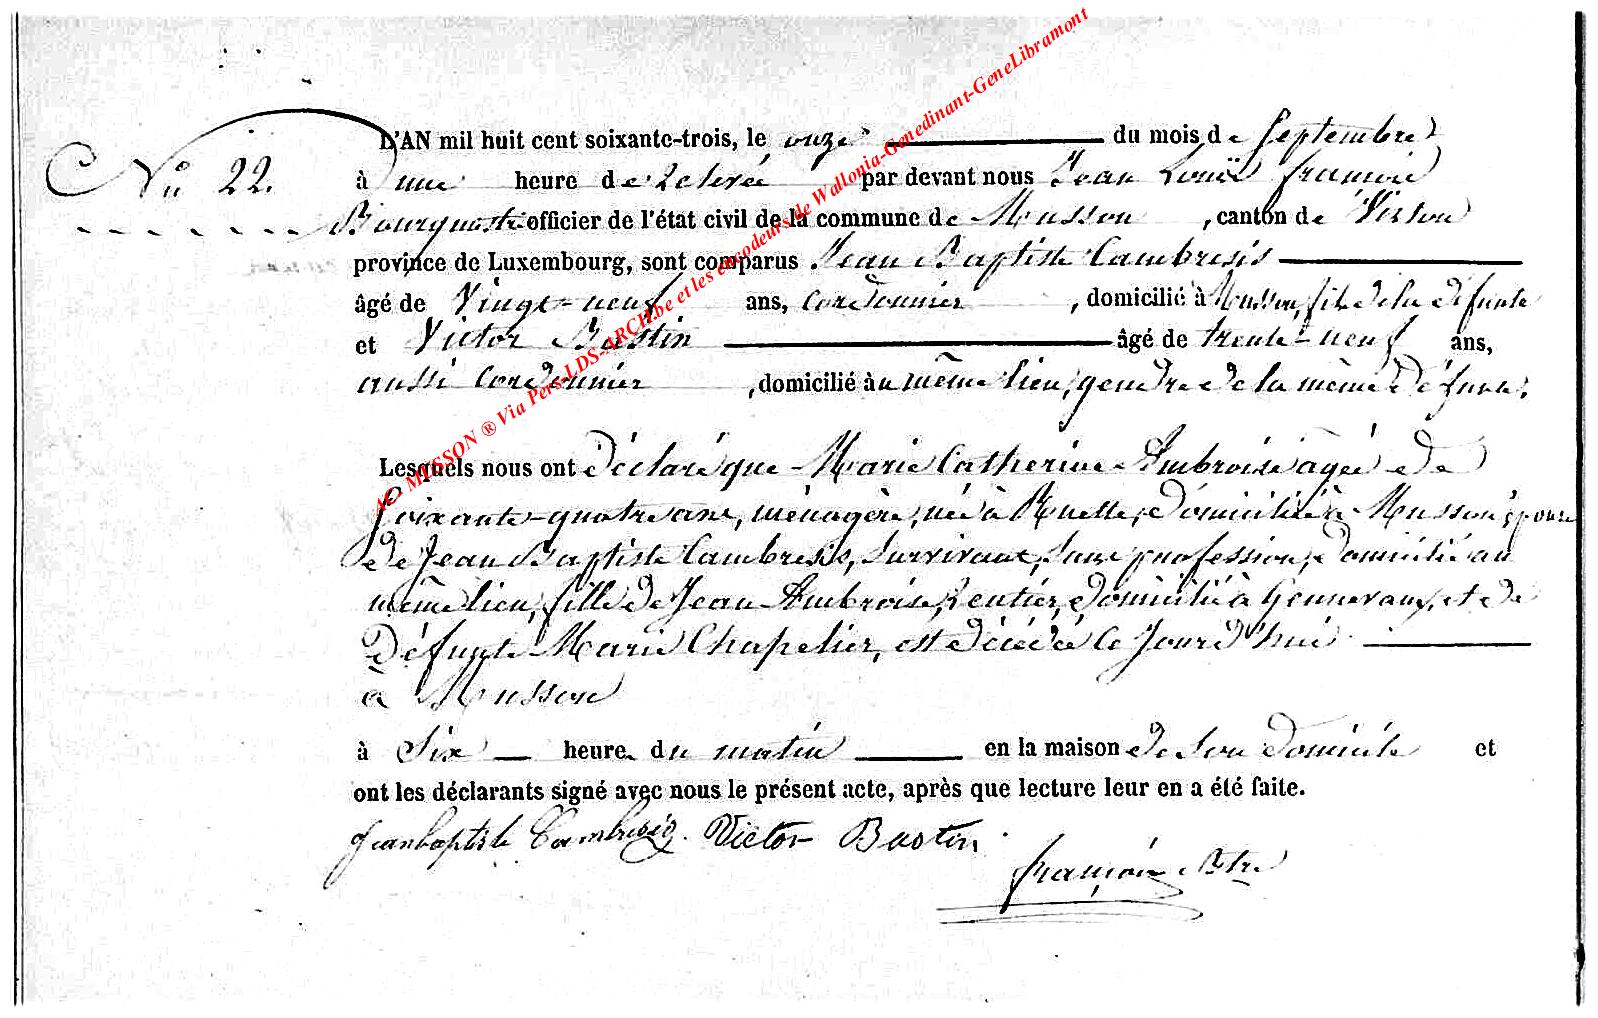 L'AN mil huit cent soixante-trois, le onze du mois de Septembre
No 22. à une heure de relevée par devant nous Jean Louis françois
Bourgmestre officier de l'état civil de la commune de Musson, canton de Virton
province de Luxembourg, sont comparus Jean Baptiste Cambresis
âgé de Vingt-neuf ans, cordonnier, domicilié à Musson, fils de la défunte
et Victor Bastin âgé de trente-neuf ans,
aussi Cordonnier, domicilié au même lieu, gendre de la même défunte.
Lesquels nous ont déclaré que Marie Catherine Ambroise agée de
soixante-quatre ans, ménagère, née à Ruette, domiciliée à Musson, épouse
de Jean Baptiste Cambresis, survivant, sans profession, domicilié au
même lieu, fille de Jean Ambroise, Rentier, domicilié à Gennevaux, et de
défunte Marie Chapelier, est décédée ce Jourd'hui
à Musson
à Six heure du matin en la maison de son domicile et
ont les déclarants signé avec nous le présent acte, après que lecture leur en a été faite.
Jean baptiste Cambresis. Victor Bastin
françois
AC MUSSON ® Via Pers-LDS-ARCH.be et les encodeurs de Wallonia-Genedinant-GeneLibramont